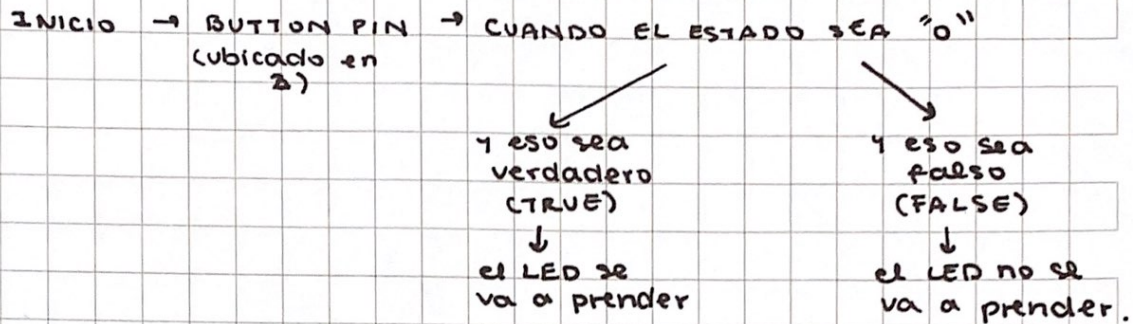 INICIO → BUTTON PIN → CUANDO EL ESTADO SEA "0"
(ubicado en
2)
y eso sea
verdadero
(TRUE)
↓
el LED se
va a prender
y eso sea
falso
(FALSE)
↓
el LED no se
va a prender.